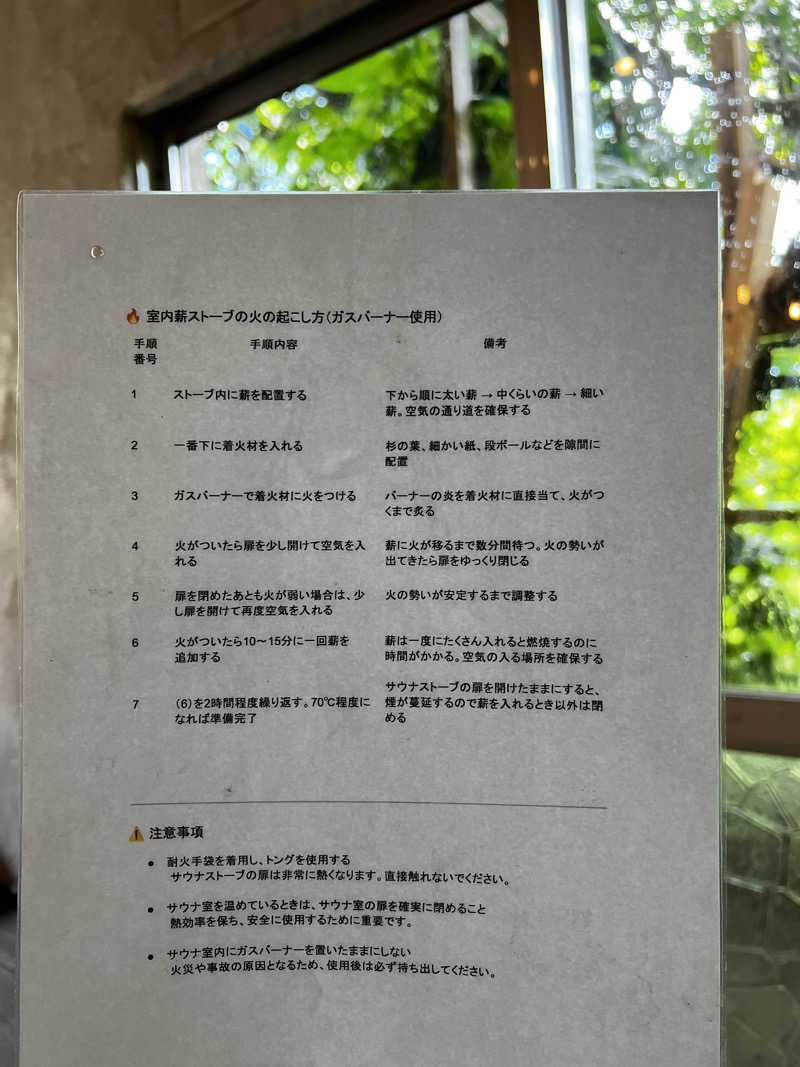 🔥 室内薪ストーブの火の起こし方(ガスバーナー使用)
手順番号 手順内容 備考
1 ストーブ内に薪を配置する 下から順に太い薪 → 中くらいの薪 → 細い
薪。空気の通り道を確保する
2 一番下に着火材を入れる 杉の葉、細かい紙、段ボールなどを隙間に
配置
3 ガスバーナーで着火材に火をつける バーナーの炎を着火材に直接当て、火がつ
くまで炙る
4 火がついたら扉を少し開けて空気を入
れる
薪に火が移るまで数分間待つ。火の勢いが
出てきたら扉をゆっくり閉じる
5 扉を閉めたあとも火が弱い場合は、少
し扉を開けて再度空気を入れる
火の勢いが安定するまで調整する
6 火がついたら10〜15分に一回薪を
追加する
薪は一度にたくさん入れると燃焼するのに
時間がかかる。空気の入る場所を確保する
7 (6)を2時間程度繰り返す。70℃程度に
なれば準備完了
サウナストーブの扉を開けたままにすると、
煙が蔓延するので薪を入れるとき以外は閉
める
⚠️ 注意事項
● 耐火手袋を着用し、トングを使用する
サウナストーブの扉は非常に熱くなります。直接触れないでください。
● サウナ室を温めているときは、サウナ室の扉を確実に閉めること
熱効率を保ち、安全に使用するために重要です。
● サウナ室内にガスバーナーを置いたままにしない
火災や事故の原因となるため、使用後は必ず持ち出してください。